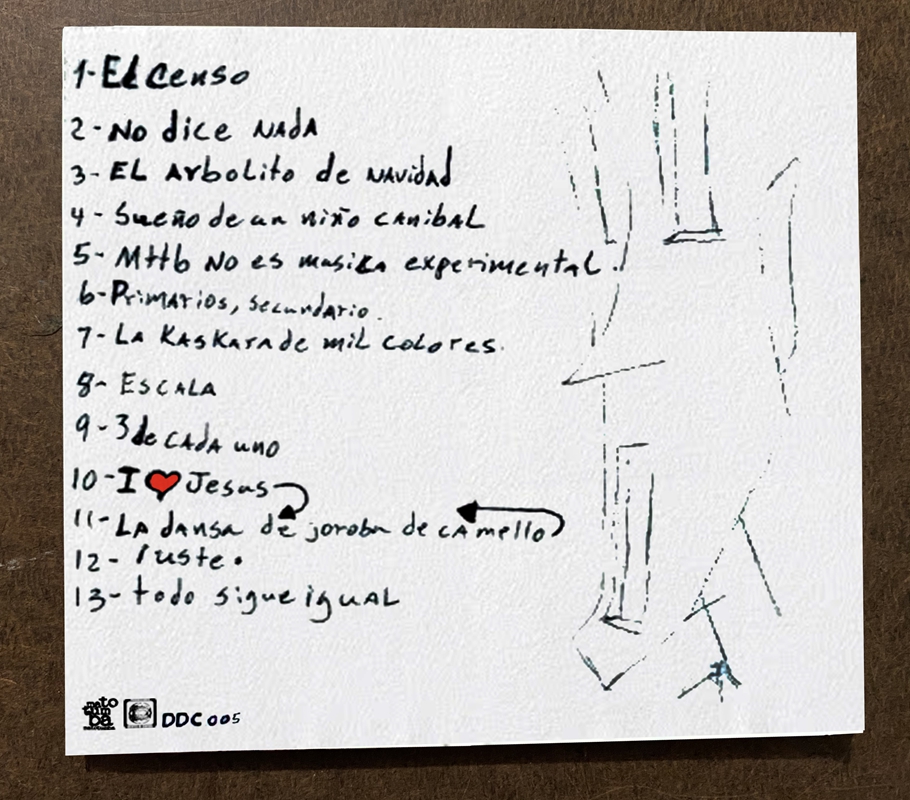 1-El censo
2-No dice NAdA
3-EL Arbolito de NAVidad
4-Sueño de un niño CANibAL
5-MHb No es musika experimental.
6-Primarios, secundario.
7-LA KasKara de mil colores.
8-ESCALA
9-3 de CAdA uno
10-I ❤ Jesus
11-LA dansa de joroba de CAmello
12-
13-todo sigue iguAL
DDC 005